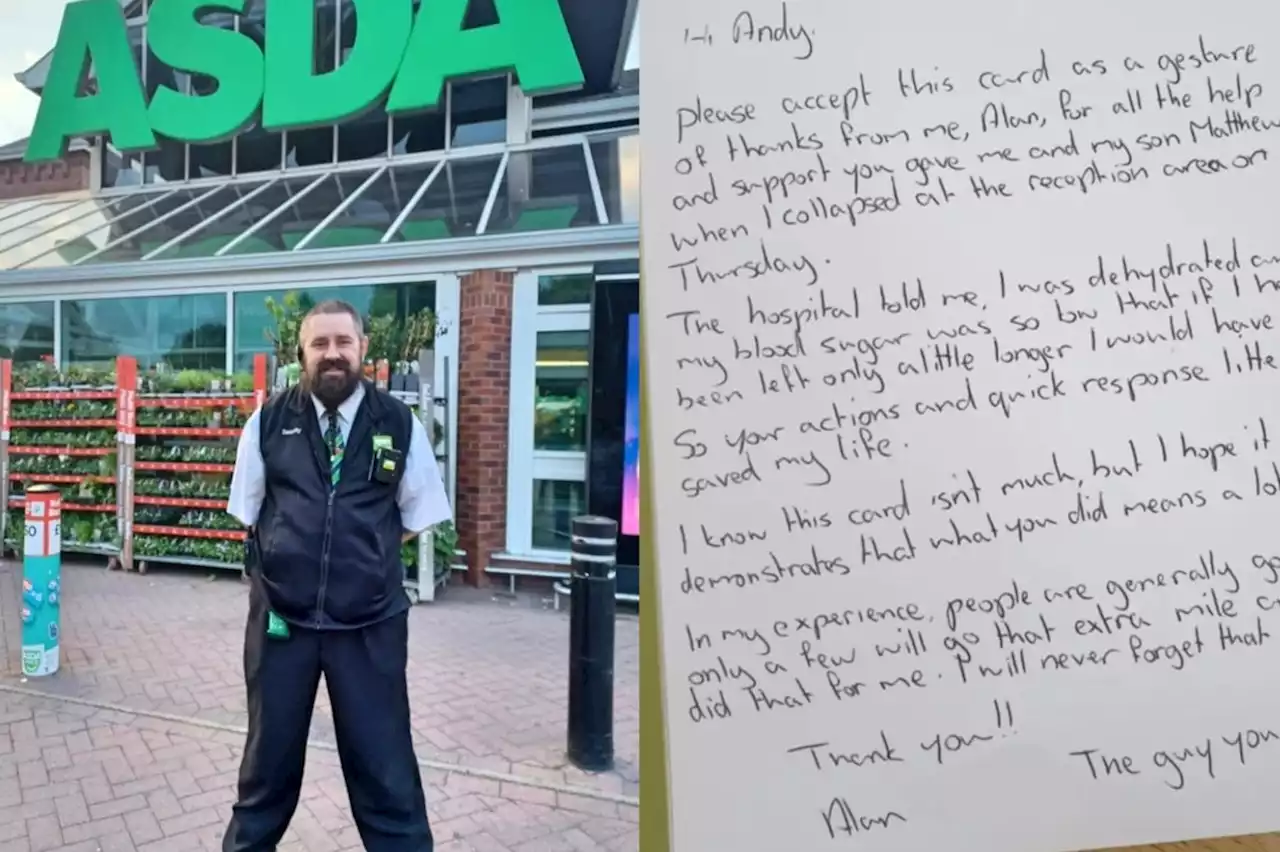 ASDA
Security
Hi Andy,
please accept this card as a gesture
of thanks from me, Alan, for all the help
and support you gave me and my son Matthew
when I collapsed at the reception area on
Thursday.
The hospital told me, I was dehydrated
my blood sugar was so low that if I
been left only a little longer I would have
So your actions and quick response litte
saved my life.
I know this card isn't much, but I hope it
demonstrates that what you did means a lot
In my experience, people are generally
only a few will go that extra mile
did that for me. I will never forget that
Thank you!!
The guy you
Alan